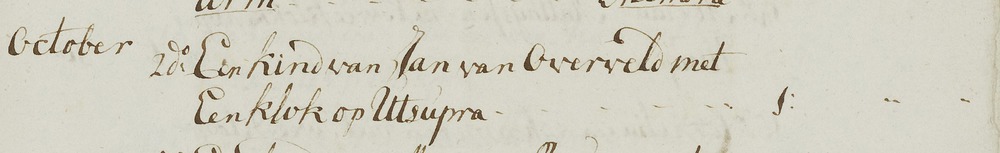 October 2de Een kind van Jan van Overveld met
Een klok op Utsupra - - - - - 1: " -